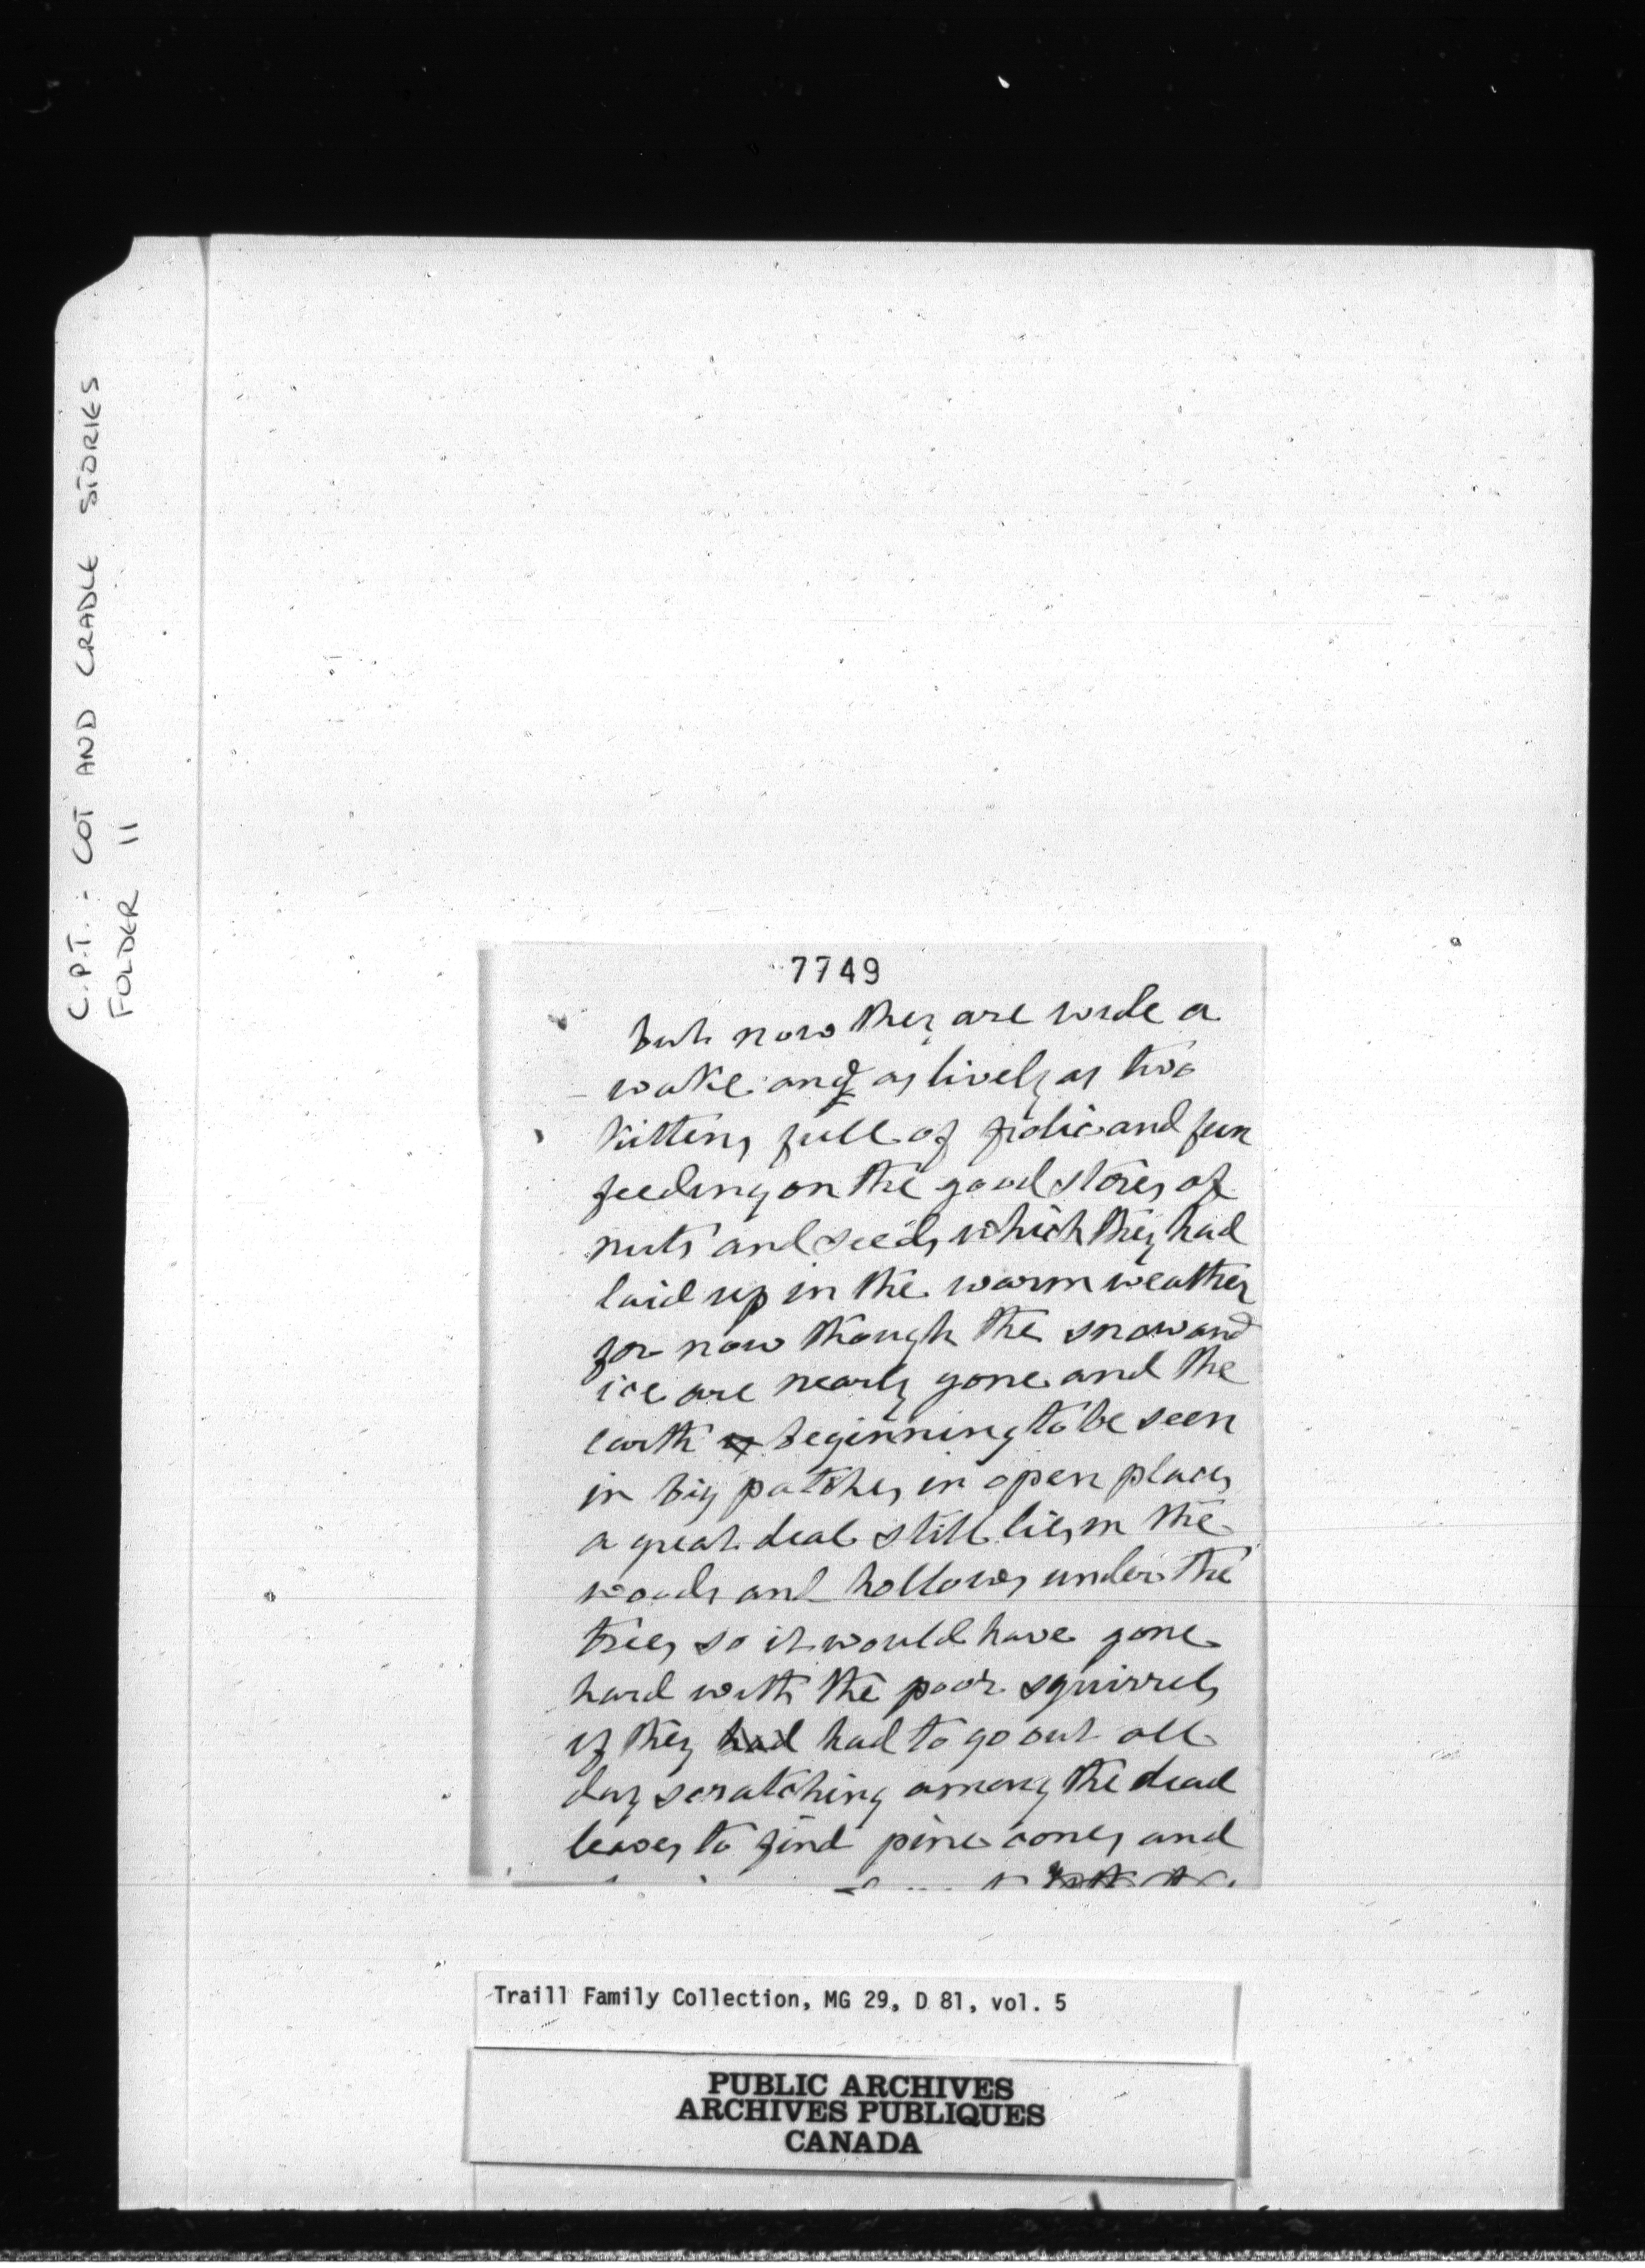 C.P.T. - COT AND CRADLE STORIES
FOLDER 11
7749
but now they are wide a
wake and as lively as two
kittens full of frolic and fun
feeding on the good stores of
nuts and seeds which they had
laid up in the warm weather
for now though the snow and
ice are nearly gone and the
earth is beginning to be seen
in big patches in open places
a great deal still lies in the
woods and hollows under the
trees so it would have gone
hard with the poor squirrels
if they had had to go out all
day scratching among the dead
leaves to find pine cones and
Traill Family Collection, MG 29, D 81, vol. 5
PUBLIC ARCHIVES
ARCHIVES PUBLIQUES
CANADA